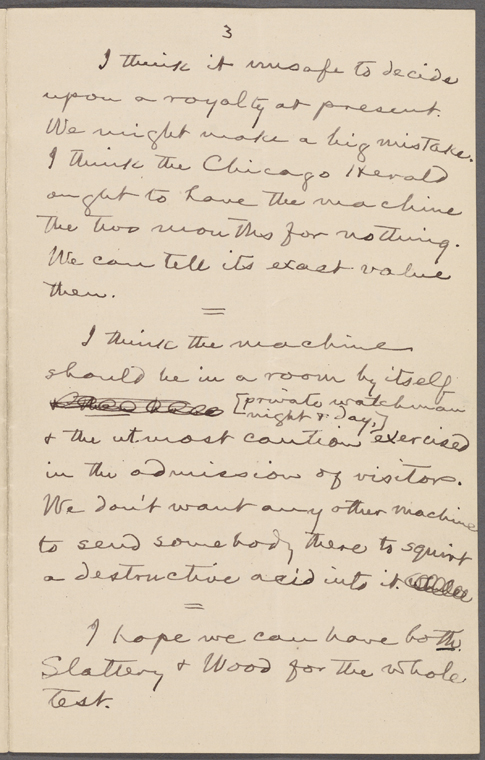 3
I think it unsafe to decide
upon a royalty at present.
We might make a big mistake.
I think the Chicago Herald
ought to have the machine
the two months for nothing.
We can tell its exact value
then.
I think the machine
should be in a room by itself
[private watchman
night & day,]
& the utmost caution exercised
in the admission of visitors.
We don't want any other machine
to send somebody there to squirt
a destructive acid into it.
I hope we can have both
Slattery & Wood for the whole
test.